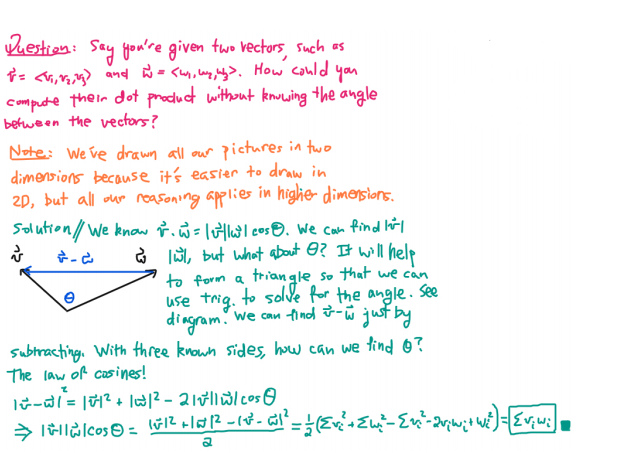 Question: Say you're given two vectors, such as
v⃗ = <v₁,v₂,v₃> and w⃗ = <w₁,w₂,w₃>. How could you
compute their dot product without knowing the angle
between the vectors?
Note: We've drawn all our pictures in two
dimensions because it's easier to draw in
2D, but all our reasoning applies in higher dimensions.
Solution// We know v⃗ · w⃗ = |v⃗||w⃗| cosθ. We can find |v⃗|
|w⃗|, but what about θ? It will help
to form a triangle so that we can
use trig. to solve for the angle. See
diagram. We can find v⃗-w⃗ just by
v⃗ v⃗ - w⃗ w⃗
θ
subtracting. With three known sides, how can we find θ?
The law of cosines!
|v⃗-w⃗|² = |v⃗|² + |w⃗|² - 2|v⃗||w⃗|cosθ
⇒ |v⃗||w⃗|cosθ = (|v⃗|² + |w⃗|² - |v⃗ - w⃗|²)/2 = ½(Σvᵢ² + Σwᵢ² - Σvᵢ² - 2vᵢwᵢ + wᵢ²) = Σvᵢwᵢ ■